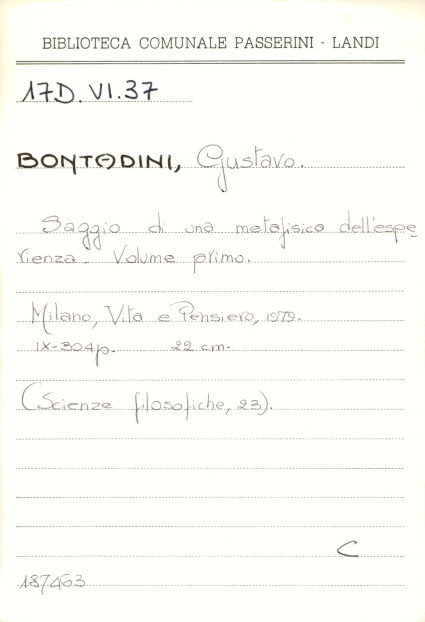 BIBLIOTECA COMUNALE PASSERINI - LANDI
17D.VI.37
BONTADINI, Gustavo.
Saggio di una metafisica dell'espe
rienza - Volume primo.
Milano, Vita e Pensiero, 1979.
IX-304p. 22 cm.
(Scienze filosofiche, 23).
C
187463